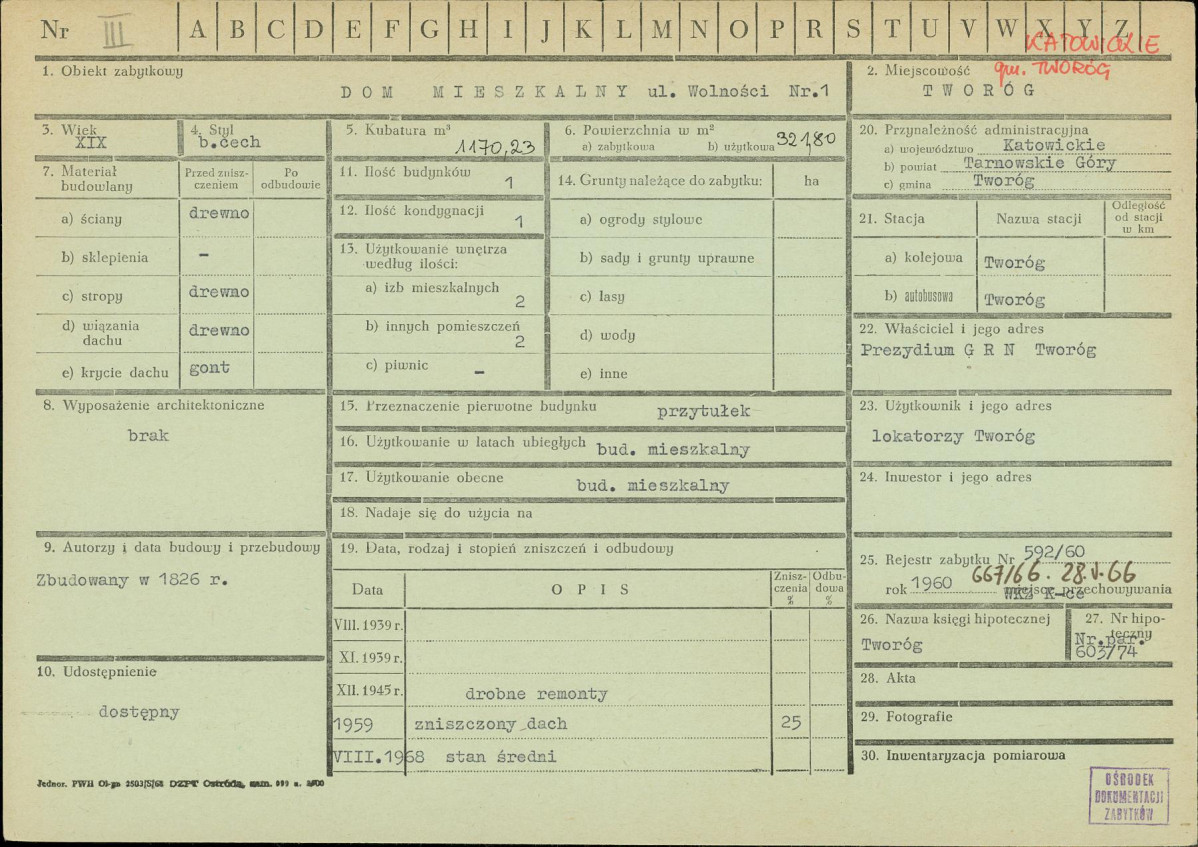 Nr III A B C D E F G H I J K L M N O P R S T U V W X Y Z
KATOWICKIE
gm. TWORÓG
1. Obiekt zabytkowy
DOM MIESZKALNY ul. Wolności Nr.1
2. Miejscowość
TWORÓG
3. Wiek
XIX
4. Styl
b.cech
5. Kubatura m³
1170,23
6. Powierzchnia w m²
a) zabytkowa b) użytkowa 321,80
7. Materiał budowlany
Przed zniszczeniem
Po odbudowie
a) ściany drewno
b) sklepienia –
c) stropy drewno
d) wiązania dachu drewno
e) krycie dachu gont
8. Wyposażenie architektoniczne
brak
9. Autorzy i data budowy i przebudowy
Zbudowany w 1826 r.
10. Udostępnienie
dostępny
Jednor. PWH Ol-zn 2503/S/68 DZPT Ostróda, zam.
11. Ilość budynków 1
12. Ilość kondygnacji 1
13. Użytkowanie wnętrza według ilości:
a) izb mieszkalnych 2
b) innych pomieszczeń 2
c) piwnic –
14. Grunty należące do zabytku: ha
a) ogrody stylowe
b) sady i grunty uprawne
c) lasy
d) wody
e) inne
15. Przeznaczenie pierwotne budynku przytułek
16. Użytkowanie w latach ubiegłych bud. mieszkalny
17. Użytkowanie obecne bud. mieszkalny
18. Nadaje się do użycia na
19. Data, rodzaj i stopień zniszczeń i odbudowy
Data OPIS Zniszczenia % Odbudowa %
VIII. 1939 r.
XI. 1939 r.
XII. 1945 r. drobne remonty
1959 zniszczony dach 25
VIII.1968 stan średni
20. Przynależność administracyjna
a) województwo Katowickie
b) powiat Tarnowskie Góry
c) gmina Tworóg
21. Stacja Nazwa stacji Odległość od stacji w km
a) kolejowa Tworóg
b) autobusowa Tworóg
22. Właściciel i jego adres
Prezydium G R N Tworóg
23. Użytkownik i jego adres
lokatorzy Tworóg
24. Inwestor i jego adres
25. Rejestr zabytku Nr 592/60
667/66. 28.V.66
rok 1960 miejsce przechowywania
WKZ K-ce
26. Nazwa księgi hipotecznej
Tworóg
27. Nr hipoteczny
Nr.par.
603/74
28. Akta
29. Fotografie
30. Inwentaryzacja pomiarowa
OŚRODEK
DOKUMENTACJI
ZABYTKÓW